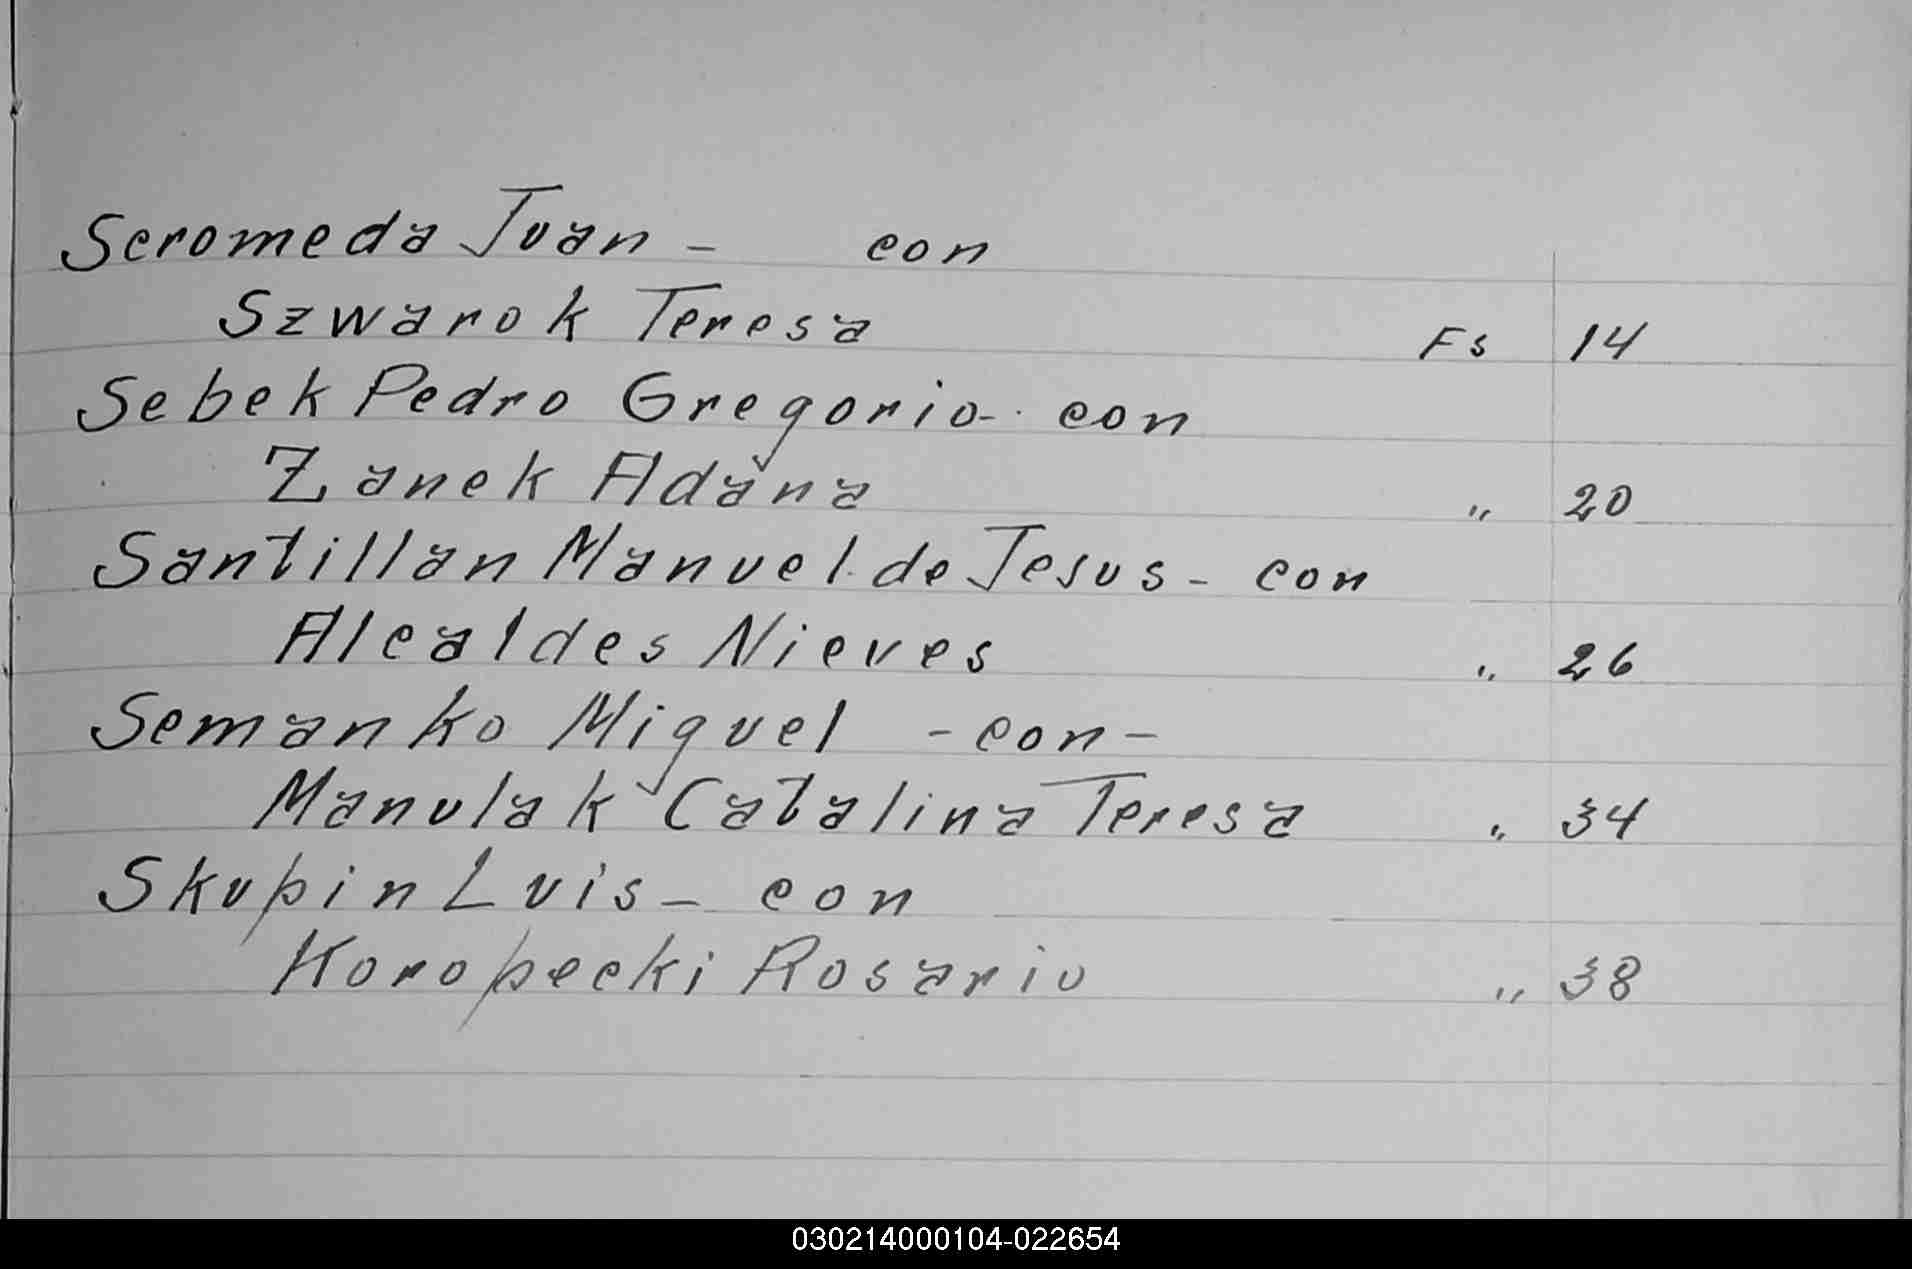 Seromeda Juan - con
Szwarok Teresa Fs 14
Sebek Pedro Gregorio - con
Zanek Adana " 20
Santillan Manuel de Jesus - con
Alcaldes Nieves " 26
Semanko Miguel - con -
Manulak Catalina Teresa " 34
Skupin Luis - con
Koropecki Rosario " 38
030214000104-022654